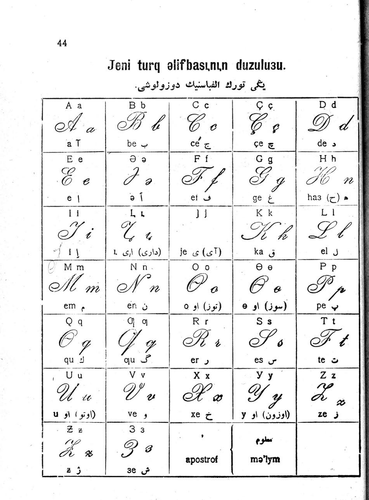 44
Jeni turq əlifbasьnьn duzuluзu.
يڭى تورك الفباسنيڭ دوزولوشى.
A a B b C c Ç ç D d
A a B b C c Ç ç D d
a آ be ب ce ج çe چ de د
E e Ə ə F f G g H h
E e Ə ə F f G g H h
e إ ə أ ef ف ge غ haз (ح) ه
I i Ь ь J j K k L l
I i K k L l
i إ je ى (آى) ka ق el ل
M m N n O o Ө ө P p
M m N n O o Ө ө P p
em م en ن o او (توز) ө او (سوز) pe پ
Q q Ƣ ƣ R r S s T t
Q q Ƣ ƣ R r S s T t
qu ك ƣu گ er ر es س te ت
U u V v X x Y y Z z
U u V v X x Y y Z z
u او (اوتو) ve و xe خ y او (اوزون) ze ز
Ƶ ƶ З з ' سلوم
Ƶ ƶ З з apostrof mə'lym
ƶ ژ зe ش